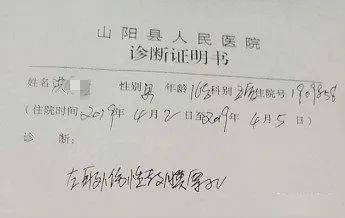 山阳县人民医院
诊断证明书
姓名 洪 性别 男 年龄 16岁 科别 住院号 1909858
(住院时间 2019年 4月 2日至 2019年 4月 5日)
诊 断:
左耳外伤性